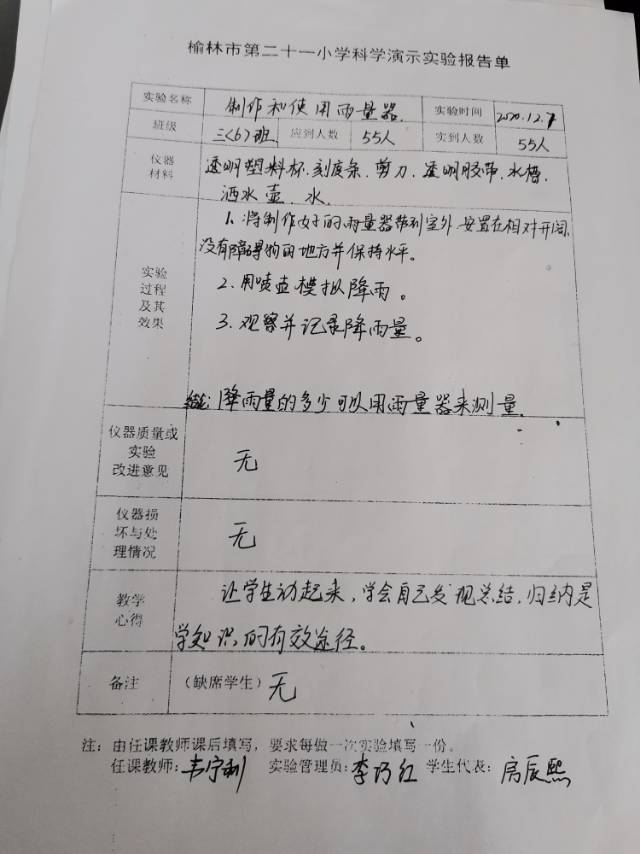 榆林市第二十一小学科学演示实验报告单
实验名称 制作和使用雨量器 实验时间 2020.12.7
班级 三(6)班 应到人数 55人 实到人数 55人
仪器材料 透明塑料杯、刻度条、剪刀、透明胶带、水槽、
洒水壶、水、
实验过程及其效果
1、将制作好的雨量器带到室外安置在相对开阔、
没有障碍物的地方并保持水平。
2、用喷壶模拟降雨。
3、观察并记录降雨量。
结论:降雨量的多少可以用雨量器来测量。
仪器质量或实验改进意见 无
仪器损坏与处理情况 无
教学心得 让学生动起来,学会自己发现总结,归纳是
学知识的有效途径。
备注 (缺席学生) 无
注:由任课教师课后填写,要求每做一次实验填写一份。
任课教师:韦宁利 实验管理员:李巧红 学生代表:席辰熙